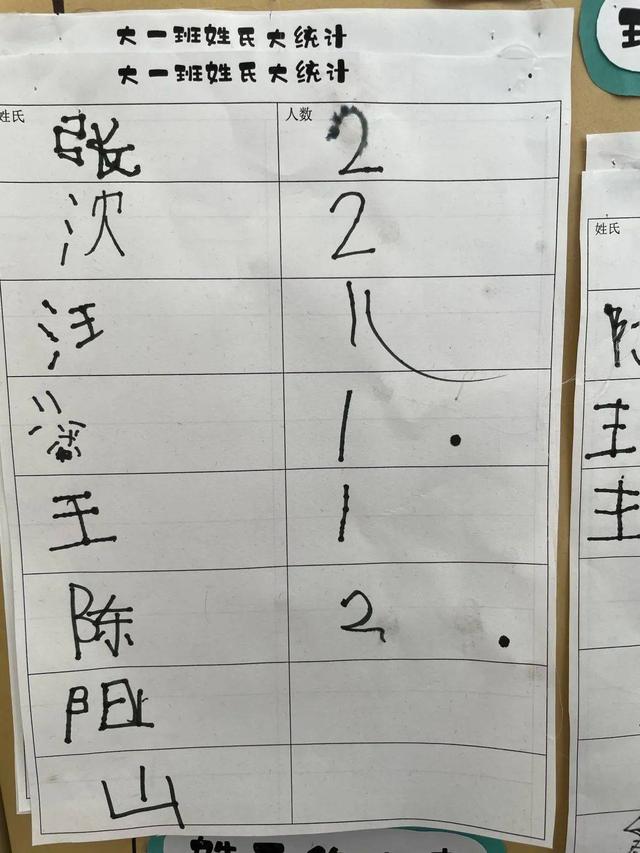 大一班姓氏大统计
大一班姓氏大统计
姓氏 人数
张 2
沈 2
汪 1
1
王 1
陈 2
山
姓氏
王
王